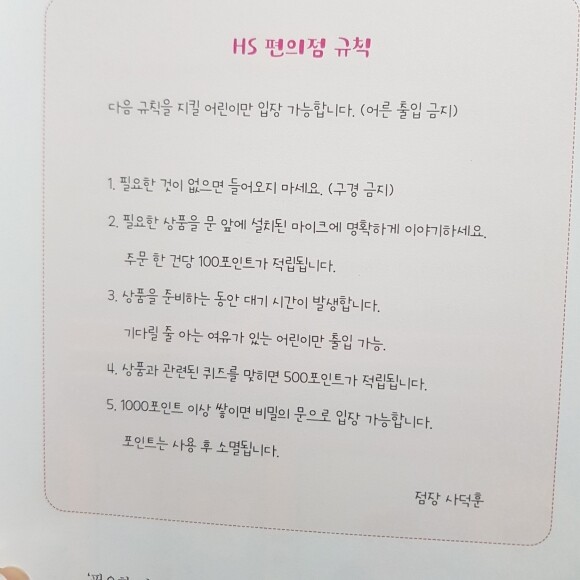 HS 편의점 규칙
다음 규칙을 지킬 어린이만 입장 가능합니다. (어른 출입 금지)
1. 필요한 것이 없으면 들어오지 마세요. (구경 금지)
2. 필요한 상품을 문 앞에 설치된 마이크에 명확하게 이야기하세요.
주문 한 건당 100포인트가 적립됩니다.
3. 상품을 준비하는 동안 대기 시간이 발생합니다.
기다릴 줄 아는 여유가 있는 어린이만 출입 가능.
4. 상품과 관련된 퀴즈를 맞히면 500포인트가 적립됩니다.
5. 1000포인트 이상 쌓이면 비밀의 문으로 입장 가능합니다.
포인트는 사용 후 소멸됩니다.
점장 사덕훈